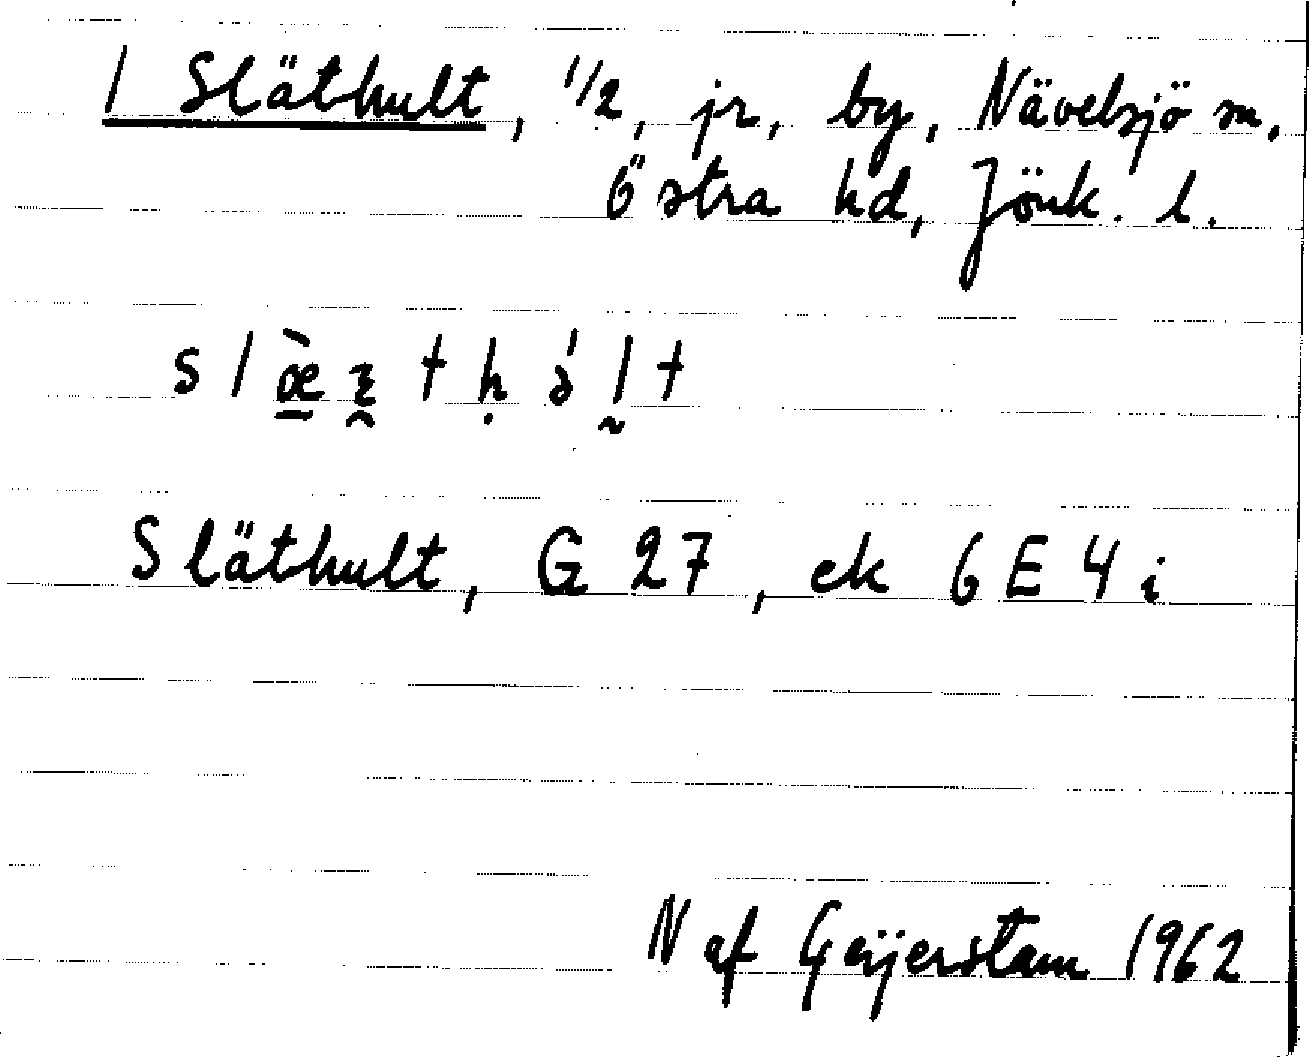 1 Släthult, 1/2, jr, by, Nävelsjö sn,
Östra hd, Jönk. l.
Släthult, G 27, ek 6 E 4 i
N af Geijerstam 1962